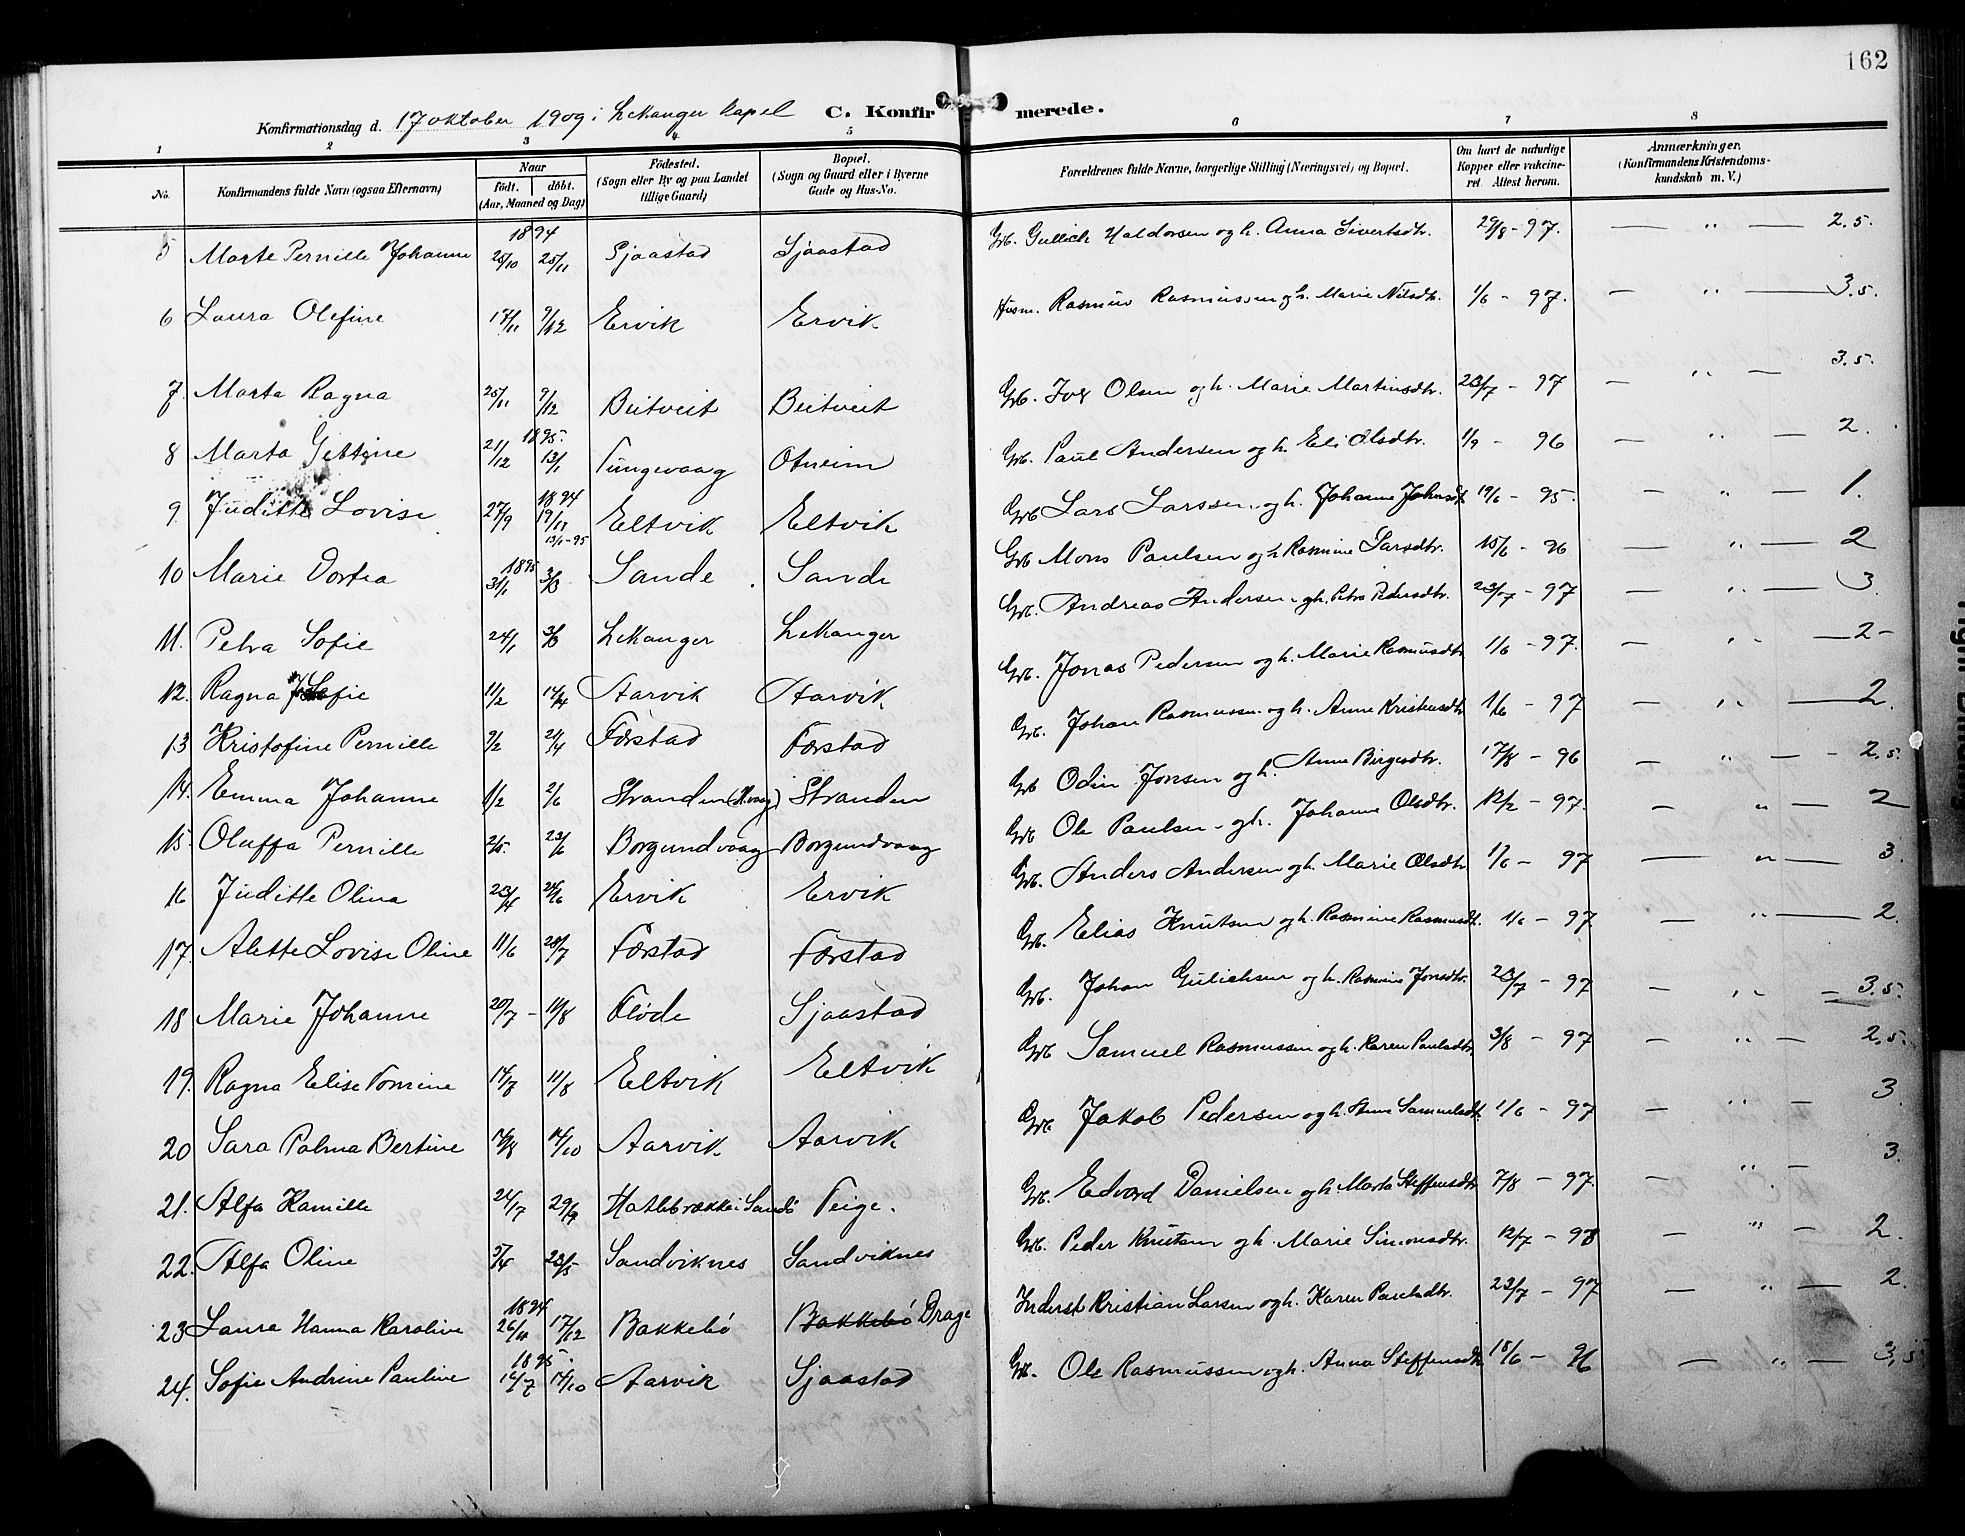 162
Konfirmationsdag d. 17 oktober 1909 i Lekanger kapel C. Konfirmerede.
1 2 3 4 5 6 7 8
No. Konfirmandens fulde Navn (ogsaa Efternavn) Naar født. døbt. (Aar, Maaned og Dag) Fødested. (Sogn eller By og paa Landet tillige Gaard) Bopæl. (Sogn og Gaard eller i Byerne Gade og Hus-No. Forældrenes fulde Navne, borgerlige Stilling (Næringsvei) og Bopæl. Om havt de naturlige Kopper eller vakcineret. Attest herom. Anmærkninger. (Konfirmandens Kristendomskundskab m. V.)
1894
5 Marte Pernille Johanne 25/10 25/11 Sjaastad Sjaastad Grb. Gullich Haldorsen og h. Anna Sivertsdtr. 29/8 - 97. — " — 2.5.
6 Laura Olefine 17/11 9/12 Ervik Ervik Husm. Rasmus Rasmussen og h. Marie Nilsdtr. 1/6 - 97. — " — 3.5.
7. Marta Ragna 25/11 9/12 Beitveit Beitveit Grb. Olsen og h. Marie Martinsdtr. 23/7 - 97 — " — 3.5.
1895
8 Marta Gittine 21/12 13/1 Tungevaag Otneim Grb. Paul Andersen og h. Eli Olsdtr. 1/9 - 96 — " — 2.
1894
9 Juditte Lovise 27/9 19/11 13/1-95 Eltvik Eltvik Grb Lars Larssen og h. Johanne 19/6 - 95. — " — 1.
1895
10 Marie Dortea 31/1 3/3 Sande Sande Grb Mons Paulsen og h Rasmine Larsdtr. 15/6 - 96 — " — 2
11. Petra Sofie 24/1 3/3 Lekanger Lekanger Grb. Andreas Andersen og h. Petra Pedersdtr. 23/7 - 97 — " — 3.
12. Ragna Sofie 11/2 14/4 Aarvik Aarvik Grb. Jonas Pedersen og h. Marie Rasmusdtr 1/6 - 97. — " — 2-
13 Kristofine Pernille 9/2 21/4 Førstad Førstad Grb. Johan Rasmussen og h. Anne Kristensdtr 1/6 - 97 — " — 2.
14. Emma Johanne 1/2 2/6 Stranden (H.vaag) Stranden Grb Odin Jonsen og h. Anne Birgesdtr. 17/8 - 96 — " — 2.5.
15. Oluffa Pernille 2/5. 23/6 Borgundvaag Borgundvaag Grb Ole Paulsen og h. Johanne Olsdtr. 12/2 - 97. — " — 2
16 Juditte Olina 23/4 24/6 Ervik Ervik Grb. Anders Andersen og h. Marie Olsdtr 1/6 - 97 — " — 3.
17. Alette Lovise Oline 11/6 28/7 Førstad Førstad Grb. Elias Knutsen og h. Rasmine Rasmusdtr. 1/6 - 97. — " — 2.
18 Marie Johanne 20/7 - 11/8 Fløde Sjaastad Grb. Johan Gulichsen og h. Rasmine Jonsdtr. 23/7 - 97 — " — 3.5.
19. Ragna Elise Tomine 14/7 11/8 Eltvik Eltvik Grb Samuel Rasmussen og h. Karen Paulsdtr. 3/8 - 97 — " — 2.5.
20 Sara Palma Bertine 16/8 14/10 Aarvik Aarvik Grb Jakob Pedersen og h. Anne Samuelsdt. 1/6 - 97 — " — 3.
21. Alfa Kamille 24/7 29/9 Hatlebrække i Sandø Teige. Grb. Edvard Danielsen og h. Marta Steffensdtr 7/8 - 97. — " — 3.
22. Alfa Oline 5/4 23/5 Sandviknes Sandviknes Grb. Peder Knutsen og h. Marie Simonsdtr. 12/7 - 98 — " — 2.
1894
23 Laura Hanna Karoline 26/11 17/12 Bakkebø Bakkebø Drage Inderst Kristian Larsen og h. Karen Paulsdtr. 22/7 - 97 — " — 2.
1895.
24. Sofie Andrine Pauline 16/7 14/10 Aarvik Sjaastad Grb. Ole Rasmussen og h. Anna Steffensdtr 18/6 - 96 — " — 3,5